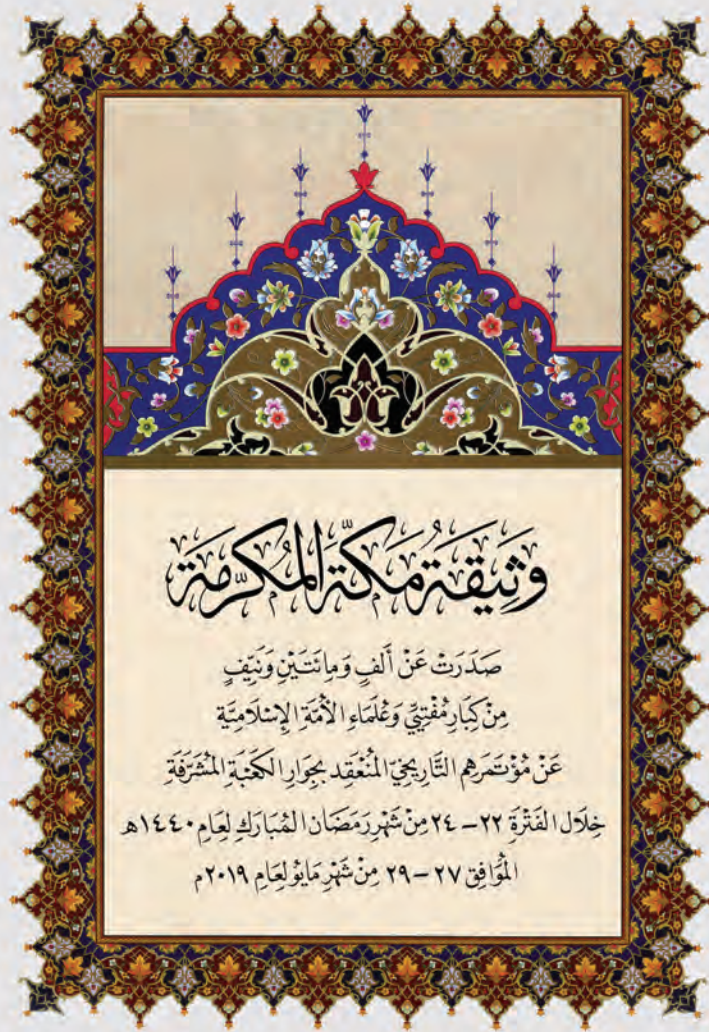 وَثِيقَةُ مَكَّةَ المُكَرَّمَة
صَدَرَتْ عَنْ أَلفٍ وَمِائَتَيْنِ وَنَيِّفٍ
مِنْ كِبَارِ مُفْتِيِّ وَعُلَمَاءِ الأُمَّةِ الإِسْلَامِيَّة
عَنْ مُؤْتَمَرِهِم التَّارِيخِيّ المُنْعَقِد بِجِوَارِ الكَعْبَةِ المُشَرَّفَةِ
خِلَال الفَتْرَةِ ٢٢ – ٢٤ مِنْ شَهْرِ رَمَضَان المُبَارَكِ لِعَامِ ١٤٤٠هـ
المُوَافِق ٢٧ – ٢٩ مِنْ شَهْرِ مَايُو لِعَامِ ٢٠١٩م